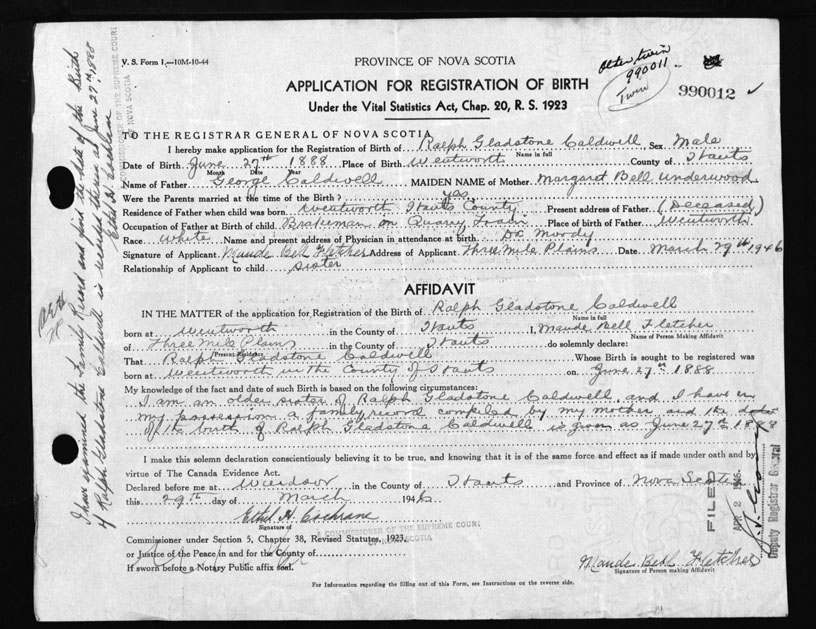 V. S. Form 1.—10M-10-44
PROVINCE OF NOVA SCOTIA
other twin
990011
Twin
990012 ✓
APPLICATION FOR REGISTRATION OF BIRTH
Under the Vital Statistics Act, Chap. 20, R. S. 1923
TO THE REGISTRAR GENERAL OF NOVA SCOTIA
I hereby make application for the Registration of Birth of Ralph Gladstone Caldwell, Sex Male
Name in full
Date of Birth June 27th 1888 Place of Birth Wentworth County of Hants
Month Date Year
Name of Father George Caldwell MAIDEN NAME of Mother Margaret Bell Underwood
Were the Parents married at the time of Birth? yes
Residence of Father when child was born Wentworth Hants County Present address of Father (Deceased)
Occupation of Father at Birth of child Brakeman on Quarry Train Place of birth of Father Wentworth
Race White Name and present address of Physician in attendance at birth Dr Moody
Signature of Applicant Maude Bell Fletcher Address of Applicant Three Mile Plains Date March 29th, 1946
Relationship of Applicant to child sister
AFFIDAVIT
IN THE MATTER of the application for Registration of the Birth of Ralph Gladstone Caldwell
Name in full
born at Wentworth in the County of Hants I, Maude Bell Fletcher
Name of Person Making Affidavit
of Three Mile Plains in the County of Hants do solemnly declare:
Present Residence
That Ralph Gladstone Caldwell Whose Birth is sought to be registered was
born at Wentworth in the County of Hants on June 27th 1888
My knowledge of the fact and date of such Birth is based on the following circumstances:
I am an older sister of Ralph Gladstone Caldwell and I have in
my possession a family record compiled by my mother and the date
of the birth of Ralph Gladstone Caldwell is given as June 27th 1888
I make this solemn declaration conscientiously believing it to be true, and knowing that it is of the same force and effect as if made under oath and by
virtue of The Canada Evidence Act.
Declared before me at Windsor in the County of Hants and Province of Nova Scotia
this 29th day of March 1946
Ethel H. Cochrane
Signature of
A COMMISSIONER OF THE SUPREME COURT
OF NOVA SCOTIA
Commissioner under Section 5, Chapter 38, Revised Statutes, 1923,
or Justice of the Peace in and for the County of
If sworn before a Notary Public affix seal.
Maude Bell Fletcher
Signature of Person making Affidavit
For Information regarding the filling out of this Form, see Instructions on the reverse side.
I have examined the Family Record and find the date of the Birth
of Ralph Gladstone Caldwell is recorded therein as June 27th 1888
Ethel H. Cochrane
COMMISSIONER OF THE SUPREME COURT
NOVA SCOTIA
FILED
APR 2 1946
Deputy Registrar General